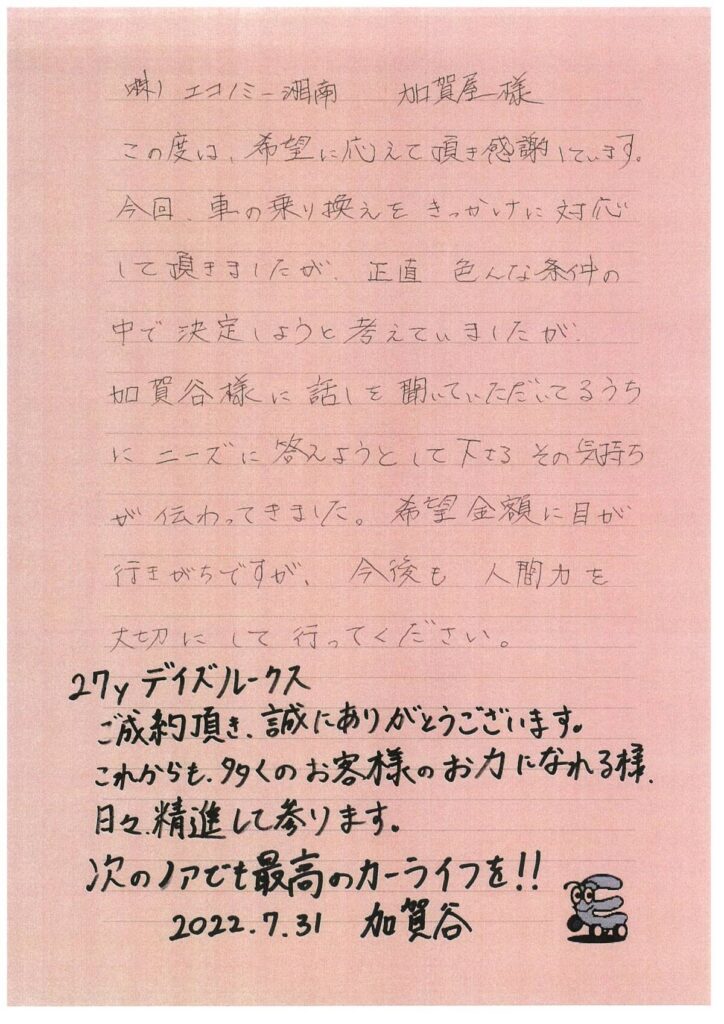 (株)エコノミー湘南　加賀屋様
この度は、希望に応えて頂き感謝しています。
今回、車の乗り換えをきっかけに対応
して頂きましたが、正直 色んな条件の
中で決定しようと考えていましたが、
加賀谷様に話しを聞いていただいてるうち
にニーズに答えようとして下さるその気持ち
が伝わってきました。希望金額に目が
行きがちですが、今後も 人間力を
大切にして行ってください。
27y デイズルークス
ご成約頂き、誠にありがとうございます。
これからも、多くのお客様のお力になれる様、
日々、精進して参ります。
次のノアでも最高のカーライフを!!
2022.7.31 加賀谷